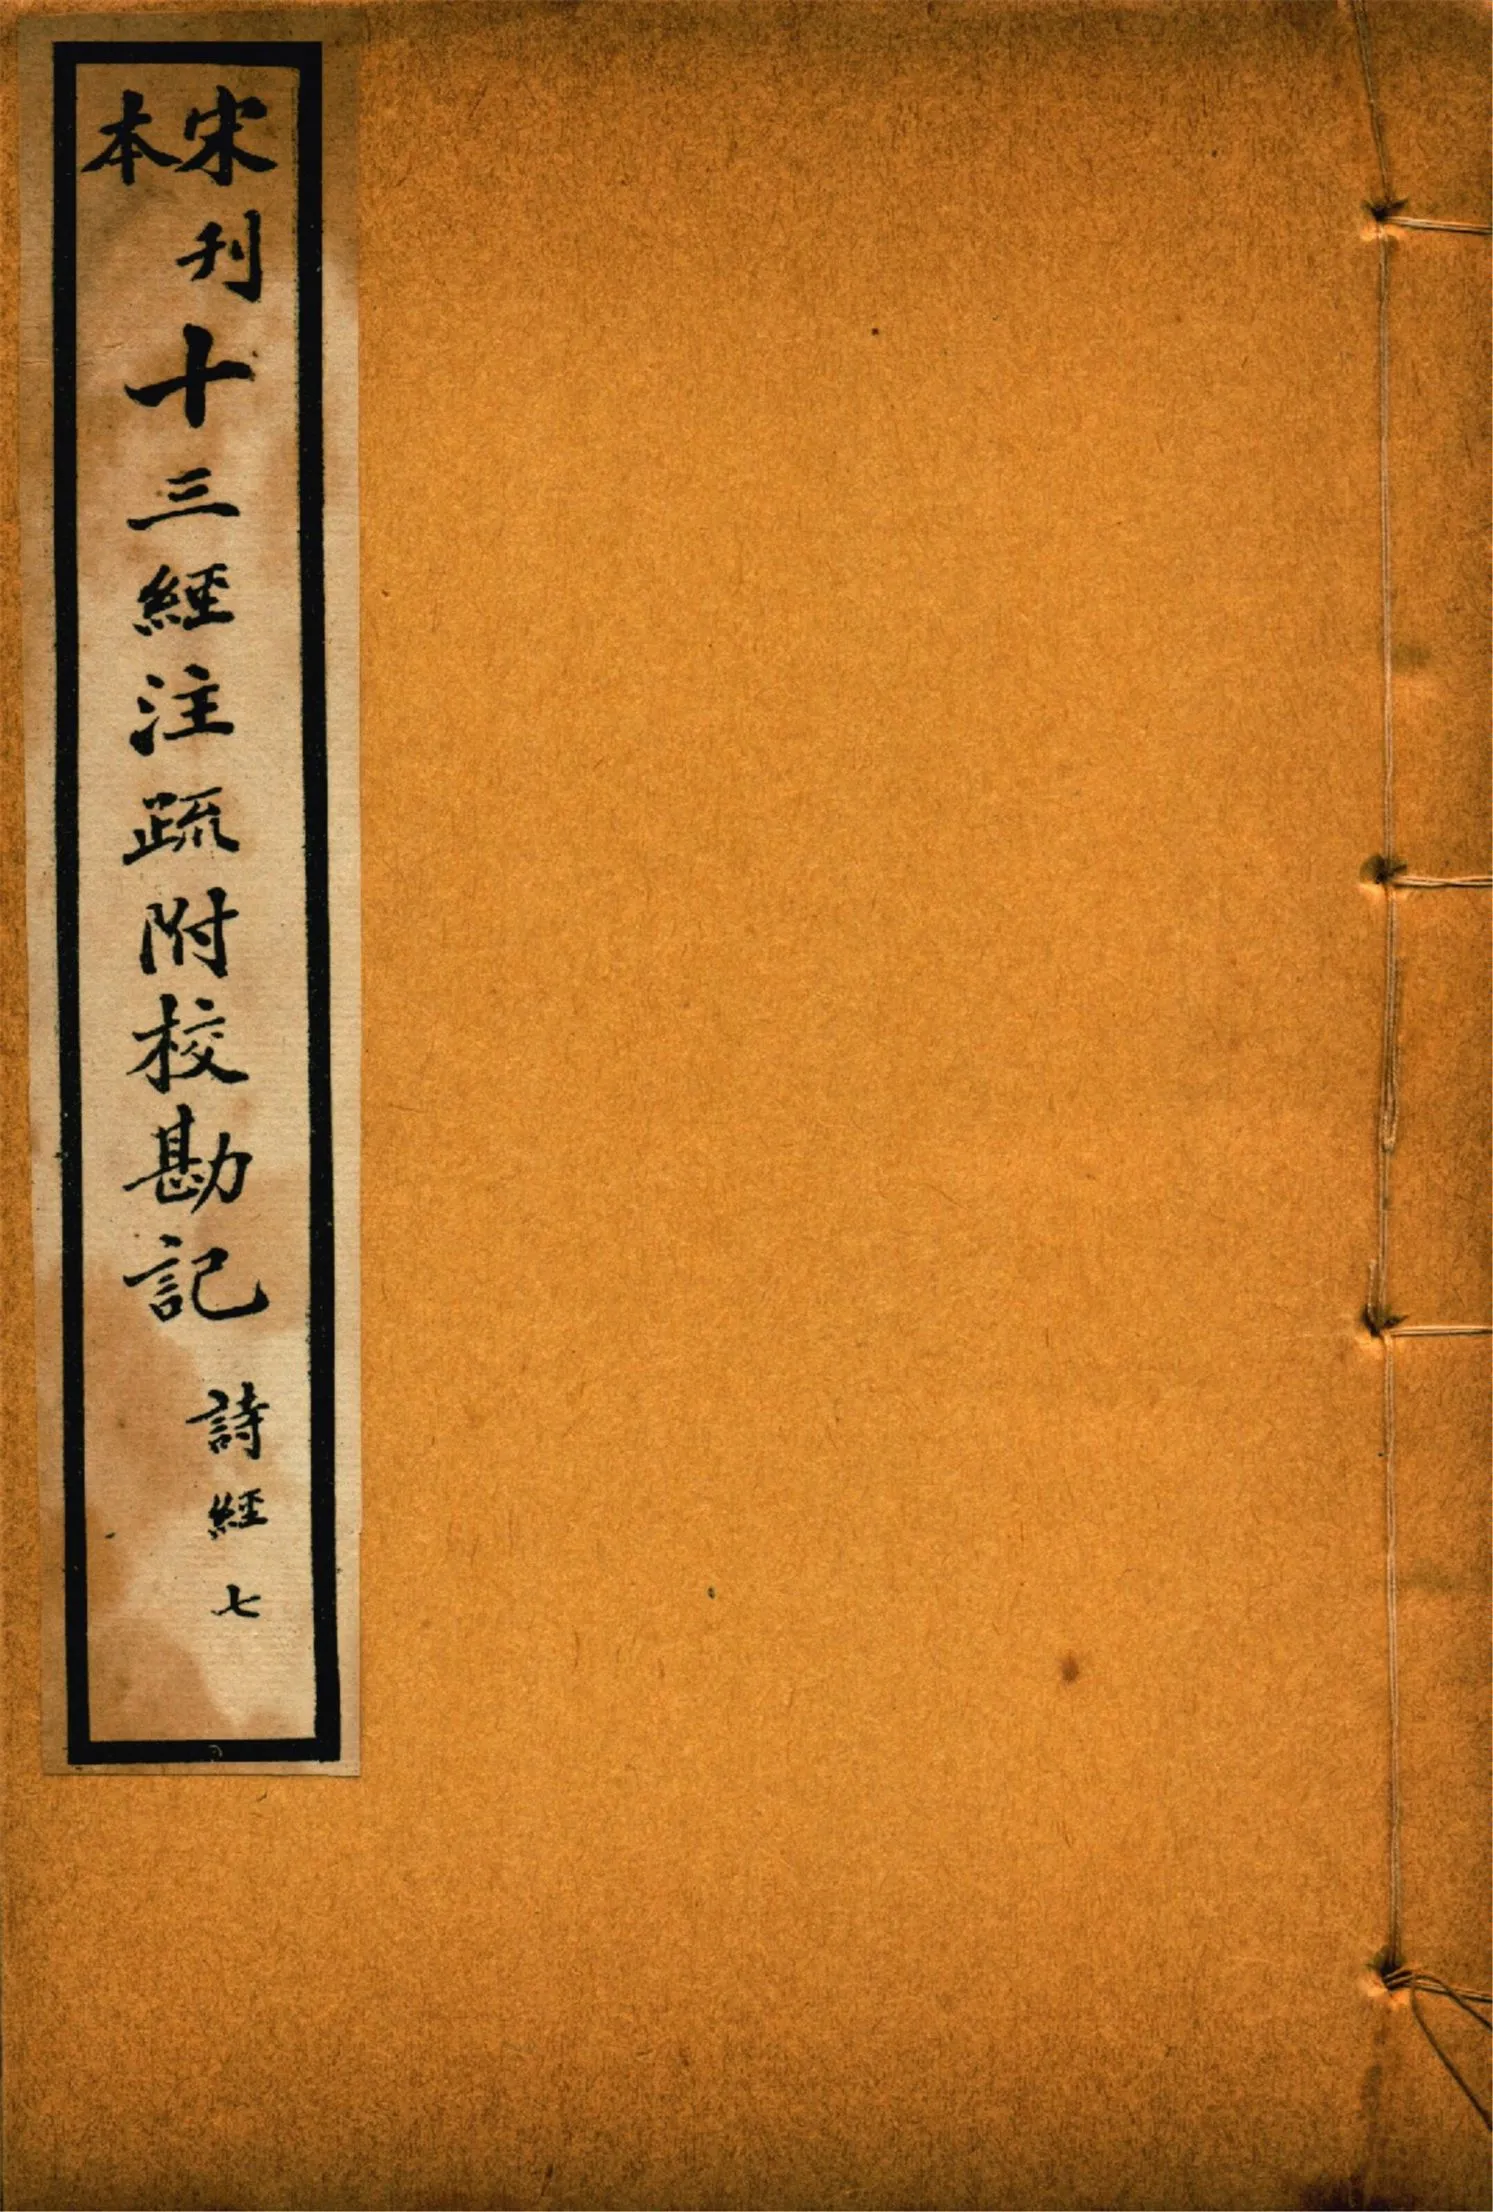 宋刊本
十三經注疏附校勘記
詩經 七